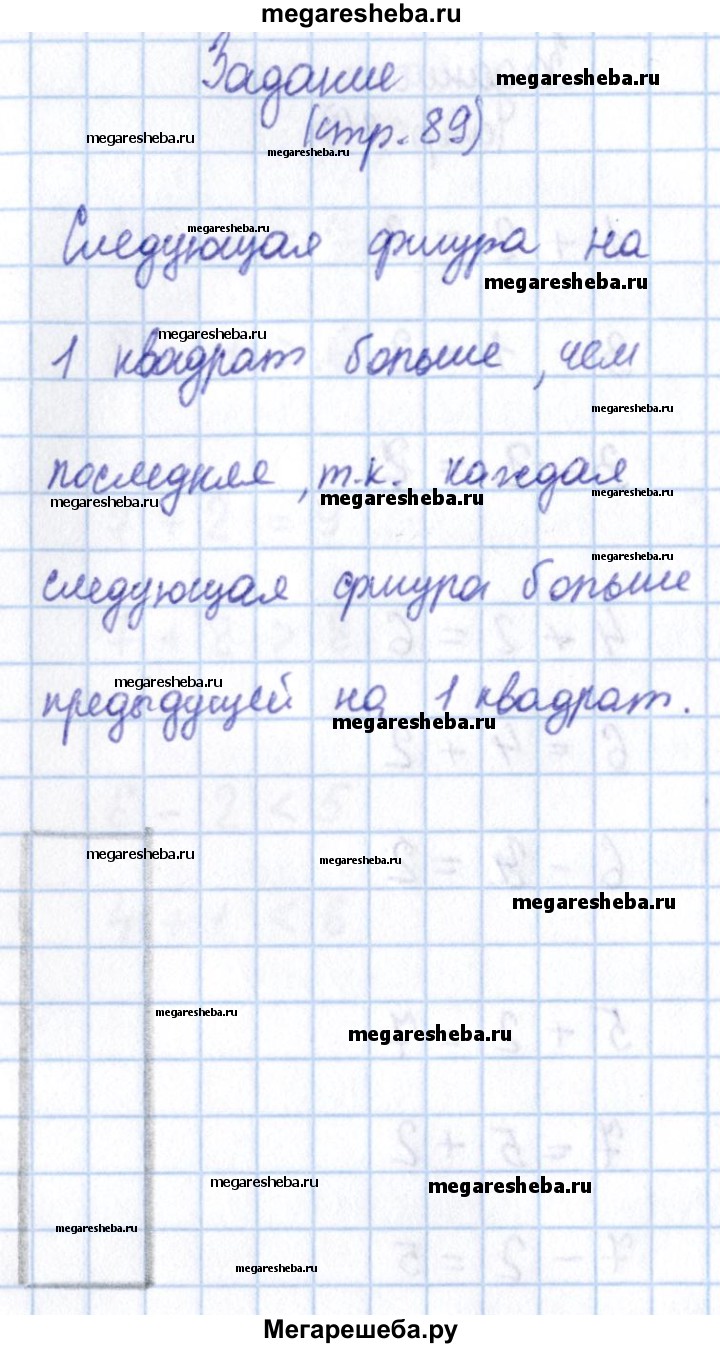 megaresheba.ru
Задание
megaresheba.ru
megaresheba.ru
(стр. 89)
megaresheba.ru
megaresheba.ru
Следующая фигура на
megaresheba.ru
megaresheba.ru
1 квадрат больше, чем
megaresheba.ru
последняя, т.к. каждая
megaresheba.ru
megaresheba.ru
megaresheba.ru
megaresheba.ru
следующая фигура больше
megaresheba.ru
предыдущей на 1 квадрат.
megaresheba.ru
megaresheba.ru
megaresheba.ru
megaresheba.ru
megaresheba.ru
megaresheba.ru
megaresheba.ru
megaresheba.ru
megaresheba.ru
megaresheba.ru
Мегарешеба.ру